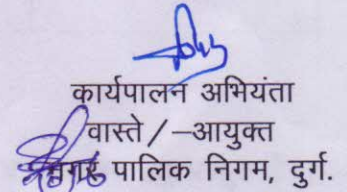 कार्यपालन अभियंता
वास्ते/–आयुक्त
नगर पालिक निगम, दुर्ग.